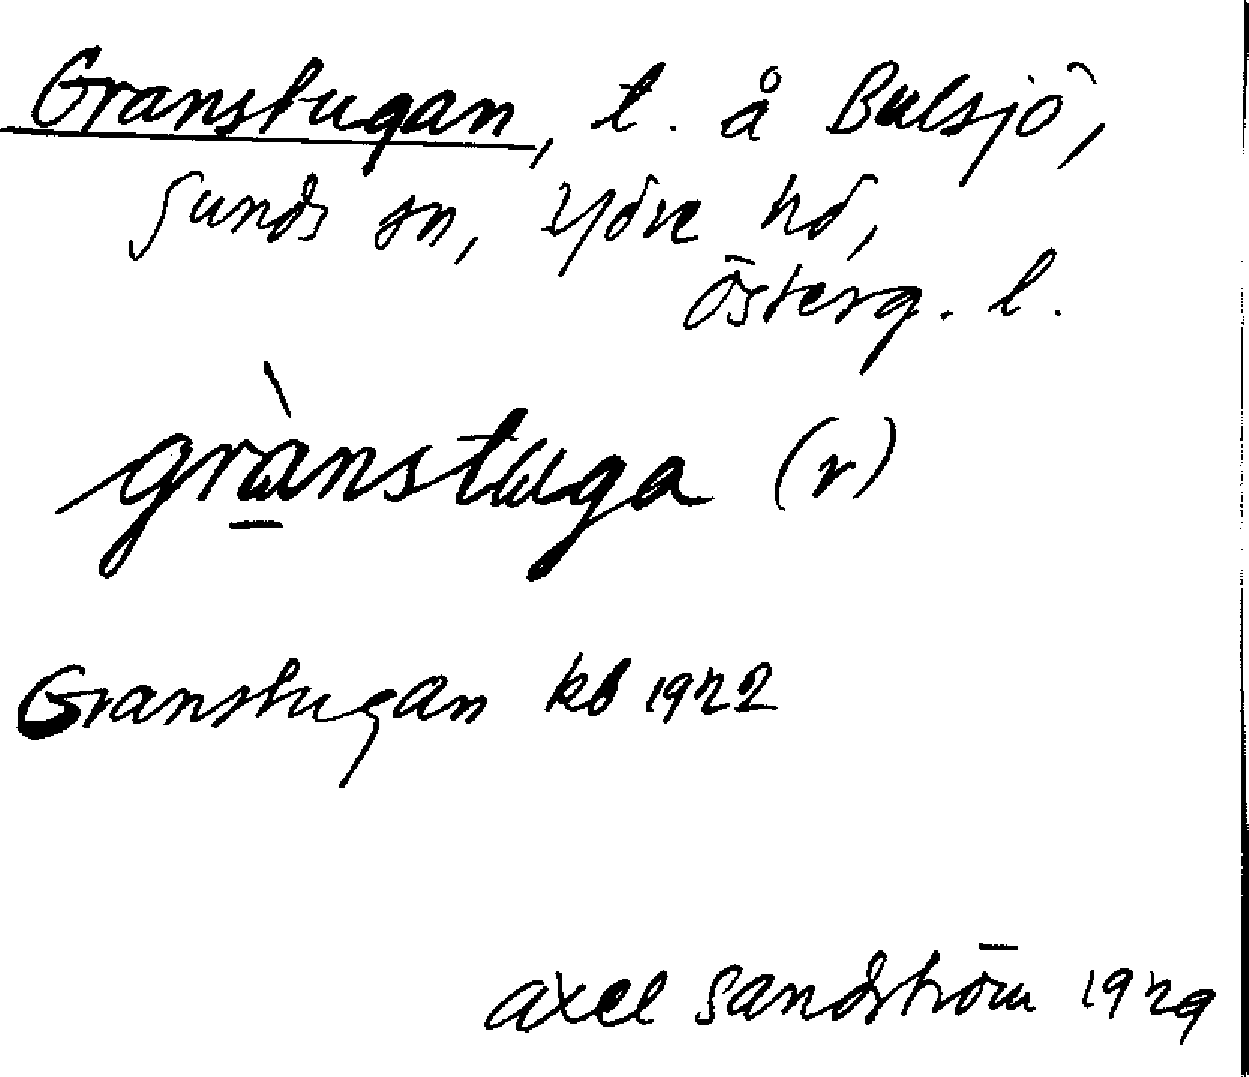 Granstugan, t. å Bulsjö,
Sunds sn, Ydre hd,
Österg. l.
grànstuga (r)
Granstugan kb 1922
Axel Sandström 1929